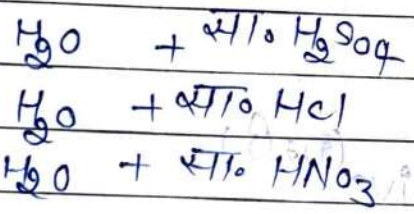 H2O + सा० H2SO4
H2O + सा० HCl
H2O + सा० HNO3